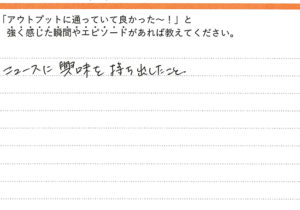 「アウトプットに通っていて良かった～！」と
強く感じた瞬間やエピソードがあれば教えてください。
ニュースに興味を持ち出したこと